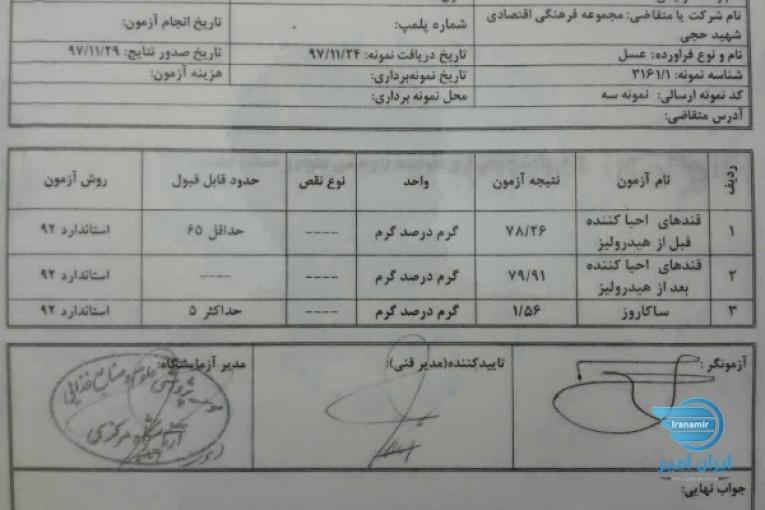 نام شرکت یا متقاضی: مجموعه فرهنگی اقتصادی شهید حججی
شماره پلمپ:
تاریخ انجام آزمون:
نام و نوع فرآورده: عسل
تاریخ دریافت نمونه: ۹۷/۱۱/۲۴
تاریخ صدور نتایج: ۹۷/۱۱/۲۹
شناسه نمونه: ۳۱۶۱/۱
تاریخ نمونه‌برداری:
هزینه آزمون:
کد نمونه ارسالی: نمونه سه
محل نمونه برداری:
آدرس متقاضی:
ردیف نام آزمون نتیجه آزمون واحد نوع نقص حدود قابل قبول روش آزمون
۱ قندهای احیا کننده قبل از هیدرولیز ۷۸/۲۶ گرم درصد گرم ---- حداقل ۶۵ استاندارد ۹۲
۲ قندهای احیا کننده بعد از هیدرولیز ۷۹/۹۱ گرم درصد گرم ---- ---- استاندارد ۹۲
۳ ساکاروز ۱/۵۶ گرم درصد گرم ---- حداکثر ۵ استاندارد ۹۲
آزمونگر:
تاییدکننده(مدیر فنی):
مدیر آزمایشگاه:
علوم و صنایع غذایی
آزمایشگاه مرکزی
Iranamir
ایران امیر
جواب نهایی: